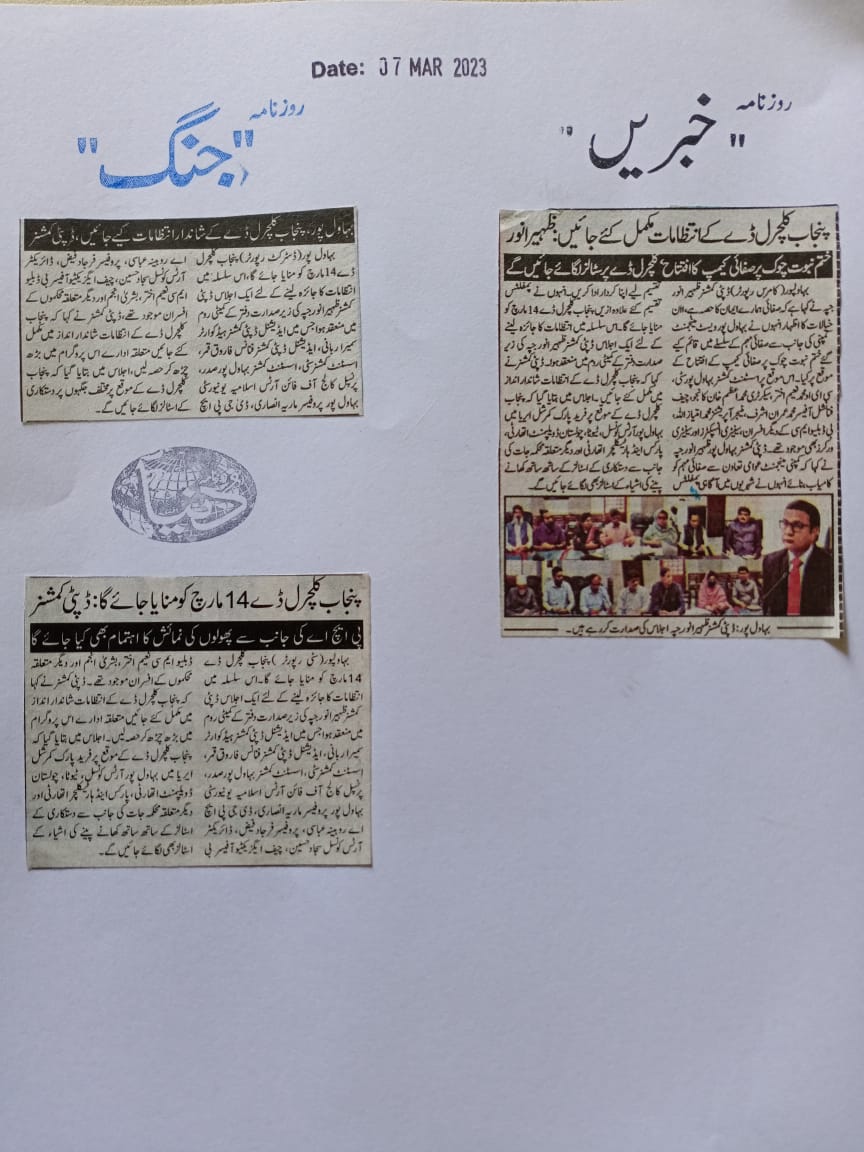 Date: 07 MAR 2023
روزنامہ
"جنگ"
بہاول پور، پنجاب کلچرل ڈے کے شاندار انتظامات کیے جائیں، ڈپٹی کمشنر
بہاول پور (ڈسٹرکٹ رپورٹر) پنجاب کلچرل
ڈے 14 مارچ کو منایا جائے گا، اس سلسلہ میں
انتظامات کا جائزہ لینے کے لئے ایک اجلاس ڈپٹی
کمشنر ظہیر انور جپہ کی زیر صدارت دفتر کے کمیٹی روم
میں منعقد ہوا جس میں ایڈیشنل ڈپٹی کمشنر ہیڈ کوارٹر
سمیرا ربانی، ایڈیشنل ڈپٹی کمشنر فنانس فاروق قمر،
اسسٹنٹ کمشنر سٹی، اسسٹنٹ کمشنر بہاول پور صدر،
پرنسپل کالج آف فائن آرٹس اسلامیہ یونیورسٹی
بہاول پور پروفیسر ماریہ انصاری، ڈی جی پی ایچ
اے روبینہ عباسی، پروفیسر فرجاد فیض، ڈائریکٹر
آرٹس کونسل سجاد حسین، چیف ایگزیکٹو آفیسر بی ڈبلیو
ایم سی نعیم اختر، بشریٰ انجم اور دیگر متعلقہ محکموں کے
افسران موجود تھے، ڈپٹی کمشنر نے کہا کہ پنجاب
کلچرل ڈے کے انتظامات شاندار انداز میں مکمل
کئے جائیں متعلقہ ادارے اس پروگرام میں بڑھ
چڑھ کر حصہ لیں، اجلاس میں بتایا گیا کہ پنجاب
کلچرل ڈے کے موقع پر مختلف جگہوں پر دستکاری
کے اسٹالز لگائے جائیں گے۔
دنیا
پنجاب کلچرل ڈے 14 مارچ کو منایا جائے گا: ڈپٹی کمشنر
پی ایچ اے کی جانب سے پھولوں کی نمائش کا اہتمام بھی کیا جائے گا
بہاولپور (سٹی رپورٹر) پنجاب کلچرل ڈے
14 مارچ کو منایا جائے گا۔ اس سلسلہ میں
انتظامات کا جائزہ لینے کے لئے ایک اجلاس ڈپٹی
کمشنر ظہیر انور جپہ کی زیر صدارت دفتر کے کمیٹی روم
میں منعقد ہوا جس میں ایڈیشنل ڈپٹی کمشنر ہیڈ کوارٹر
سمیرا ربانی، ایڈیشنل ڈپٹی کمشنر فنانس فاروق قمر،
اسسٹنٹ کمشنر سٹی، اسسٹنٹ کمشنر بہاول پور صدر،
پرنسپل کالج آف فائن آرٹس اسلامیہ یونیورسٹی
بہاول پور پروفیسر ماریہ انصاری، ڈی جی پی ایچ
اے روبینہ عباسی، پروفیسر فرجاد فیض، ڈائریکٹر
آرٹس کونسل سجاد حسین، چیف ایگزیکٹو آفیسر بی
ڈبلیو ایم سی نعیم اختر، بشریٰ انجم اور دیگر متعلقہ
محکموں کے افسران موجود تھے۔ ڈپٹی کمشنر نے کہا
کہ پنجاب کلچرل ڈے کے انتظامات شاندار انداز
میں مکمل کئے جائیں متعلقہ ادارے اس پروگرام
میں بڑھ چڑھ کر حصہ لیں۔ اجلاس میں بتایا گیا کہ
پنجاب کلچرل ڈے کے موقع پر فرید پارک کمرشل
ایریا میں بہاول پور آرٹس کونسل، ٹیوٹا، چولستان
ڈویلپمنٹ اتھارٹی، پارکس اینڈ ہارٹیکلچر اتھارٹی اور
دیگر متعلقہ محکمہ جات کی جانب سے دستکاری کے
اسٹالز کے ساتھ ساتھ کھانے پینے کی اشیاء کے
اسٹالز بھی لگائے جائیں گے۔
روزنامہ
"خبریں"
پنجاب کلچرل ڈے کے انتظامات مکمل کئے جائیں: ظہیر انور
ختم نبوت چوک پر صفائی کیمپ کا افتتاح کلچرل ڈے پر سٹالز لگائے جائیں گے
بہاولپور (کامرس رپورٹر) ڈپٹی کمشنر ظہیر انور
جپہ نے کہا ہے کہ صفائی ہمارے ایمان کا حصہ ہے، ان
خیالات کا اظہار انہوں نے بہاول پور ویسٹ مینجمنٹ
کمپنی کی جانب سے صفائی مہم کے سلسلے میں قائم کیے
گئے ختم نبوت چوک پر صفائی کیمپ کے افتتاح کے
موقع پر کیا۔ اس موقع پر اسسٹنٹ کمشنر بہاول پور سٹی،
سی ای او محمد نعیم اختر، سیکرٹری محمد اعظم خان کانجو، چیف
فنانشل آفیسر محمد عمران اشرف، منیجر آپریشنز محمد امتیاز اللہ،
بی ڈبلیو ایم سی کے دیگر افسران، سینیٹری انسپکٹرز اور سینیٹری
ورکرز بھی موجود تھے۔ ڈپٹی کمشنر بہاول پور ظہیر انور جپہ
نے کہا کہ کمپنی مینجمنٹ عوامی تعاون سے صفائی مہم کو
کامیاب بنائے انہوں نے شہریوں میں آگاہی پمفلٹس
تقسیم کیے اپنا کردار ادا کریں۔ انہوں نے پمفلٹس
تقسیم کئے علاوہ ازیں پنجاب کلچرل ڈے 14 مارچ کو
منایا جائے گا۔ اس سلسلہ میں انتظامات کا جائزہ لینے
کے لئے ایک اجلاس ڈپٹی کمشنر ظہیر انور جپہ کی زیر
صدارت دفتر کے کمیٹی روم میں منعقد ہوا۔ ڈپٹی کمشنر نے
کہا کہ پنجاب کلچرل ڈے کے انتظامات شاندار انداز
میں مکمل کئے جائیں۔ اجلاس میں بتایا گیا کہ پنجاب
کلچرل ڈے کے موقع پر فرید پارک کمرشل ایریا میں
بہاول پور آرٹس کونسل، ٹیوٹا، چولستان ڈویلپمنٹ اتھارٹی،
پارکس اینڈ ہارٹیکلچر اتھارٹی اور دیگر متعلقہ محکمہ جات کی
جانب سے دستکاری کے اسٹالز کے ساتھ ساتھ کھانے
پینے کی اشیاء کے اسٹالز بھی لگائے جائیں گے۔
بہاول پور: ڈپٹی کمشنر ظہیر انور جپہ اجلاس کی صدارت کر رہے ہیں۔